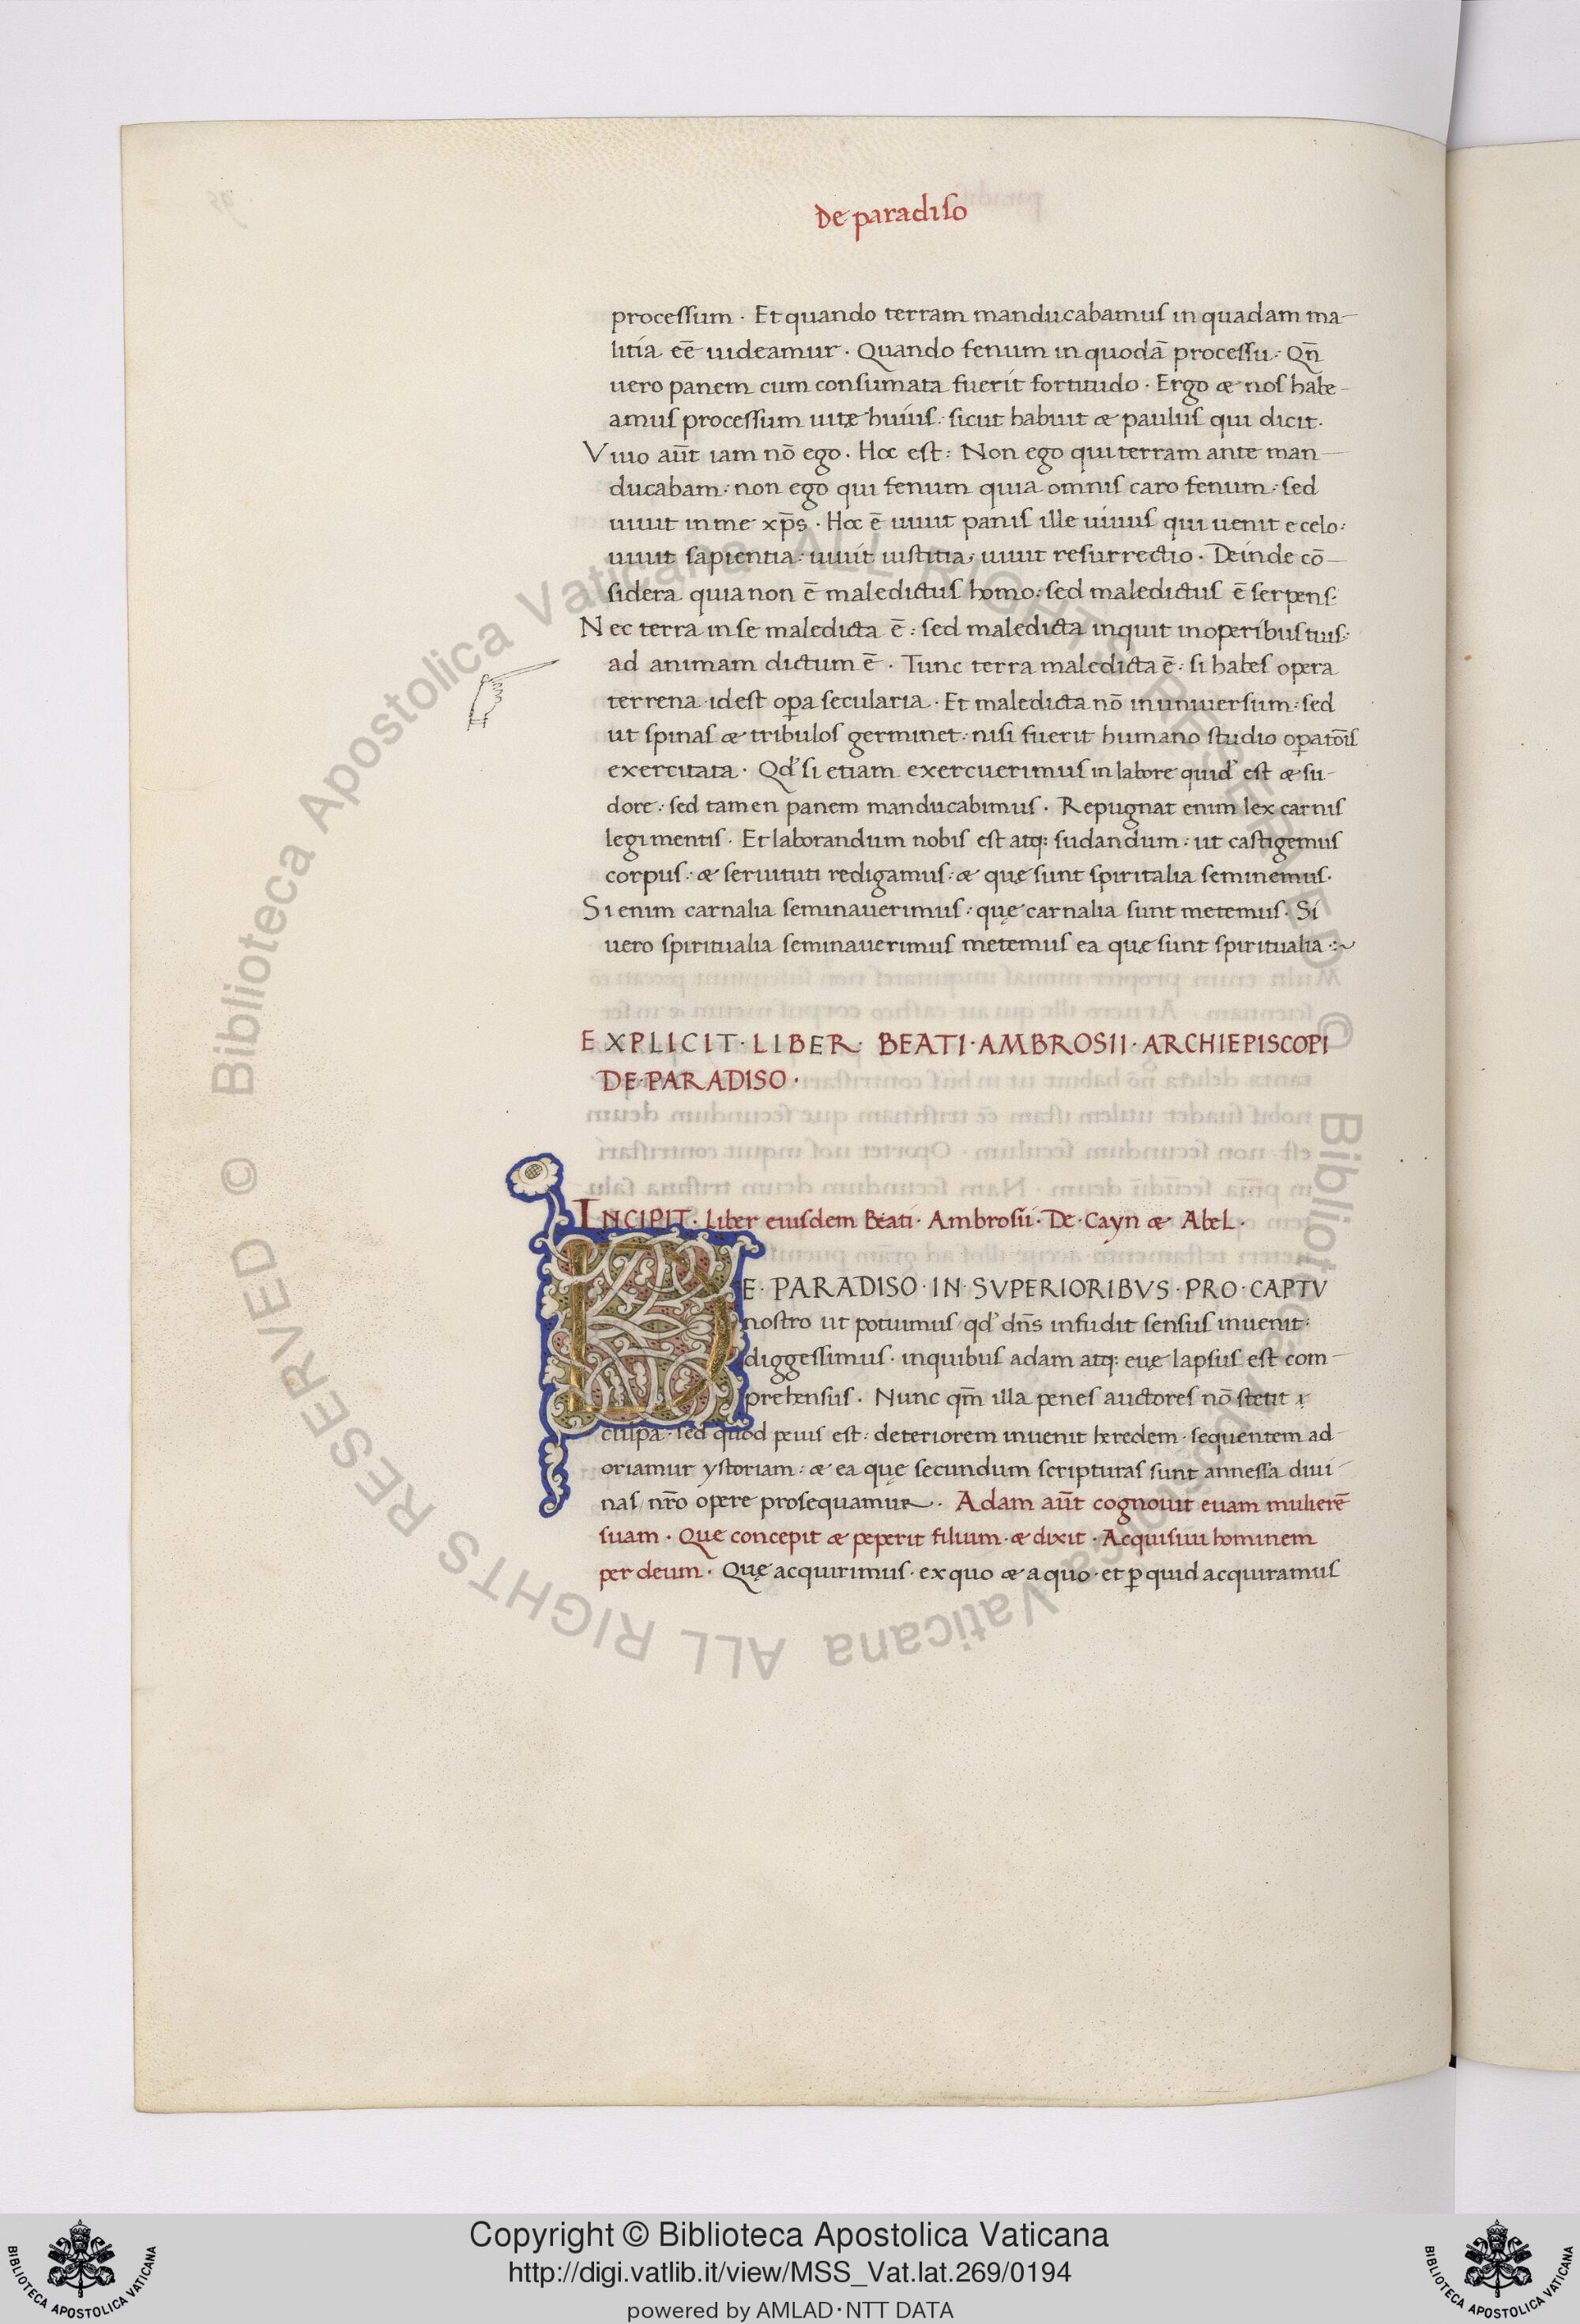 De paradiso
processum · Et quando terram manducabamus in quadam ma-
litia eē uideamur · Quando fenum in quodā processu: Qn̄
uero panem cum consumata fuerit fortitudo · Ergo æ nos habe-
amus processum uitę huius: sicut habuit æ paulus qui dicit.
Viuo aūt iam nō ego. Hoc est: Non ego qui terram ante man-
ducabam: non ego qui fenum quia omnis caro fenum: sed
uiuit in me xp̄s · Hoc ē uiuit panis ille uiuus qui uenit e celo:
uiuit sapientia: uiuit iustitia: uiuit resurrectio · Deinde cō-
sidera quia non ē maledictus homo: sed maledictus ē serpens:
Nec terra in se maledicta ē: sed maledicta inquit in operibus tuis:
ad animam dictum ē · Tunc terra maledicta ē: si habes opera
terrena idest oꝑa secularia · Et maledicta nō in uniuersum: sed
ut spinas æ tribulos germinet: nisi fuerit humano studio oꝑatōis
exercitata · Qd' si etiam exercuerimus in labore quid' est æ su-
dore: sed tamen panem manducabimus · Repugnat enim lex carnis
legi mentis · Et laborandum nobis est atq: sudandum: ut castigemus
corpus: æ seruituti redigamus: æ quę sunt spiritalia seminemus.
Si enim carnalia seminauerimus: quę carnalia sunt metemus. Si
uero spiritualia seminauerimus metemus ea quę sunt spiritualia :~
EXPLICIT · LIBER · BEATI · AMBROSII · ARCHIEPISCOPI
DE · PARADISO ·
INCIPIT · Liber eiusdem Beati · Ambrosii · De · Cayn æ Abel ·
DE · PARADISO · IN · SVPERIORIBVS · PRO · CAPTV
nostro ut potuimus / qd' dn̄s infudit sensus inuenit:
diggessimus · inquibus adam atq: euę lapsus est com-
prehensus · Nunc qm̄ illa penes auctores nō stetit
culpa · sed quod peius est: deteriorem inuenit heredem · sequentem ad-
oriamur ystoriam: æ ea quę secundum scripturas sunt annessa diui-
nas / nr̄o opere prosequamur · Adam aūt cognouit euam mulierē
suam · Que concepit æ peperit filium · æ dixit · Acquisiui hominem
per deum · Quę acquirimus · ex quo æ a quo · et ꝑ quid acquiramus
© Biblioteca Apostolica Vaticana ALL RIGHTS RESERVED
© Biblioteca Apostolica Vaticana ALL RIGHTS RESERVED
Copyright © Biblioteca Apostolica Vaticana
http://digi.vatlib.it/view/MSS_Vat.lat.269/0194
powered by AMLAD · NTT DATA
BIBLIOTECA APOSTOLICA VATICANA
BIBLIOTECA APOSTOLICA VATICANA